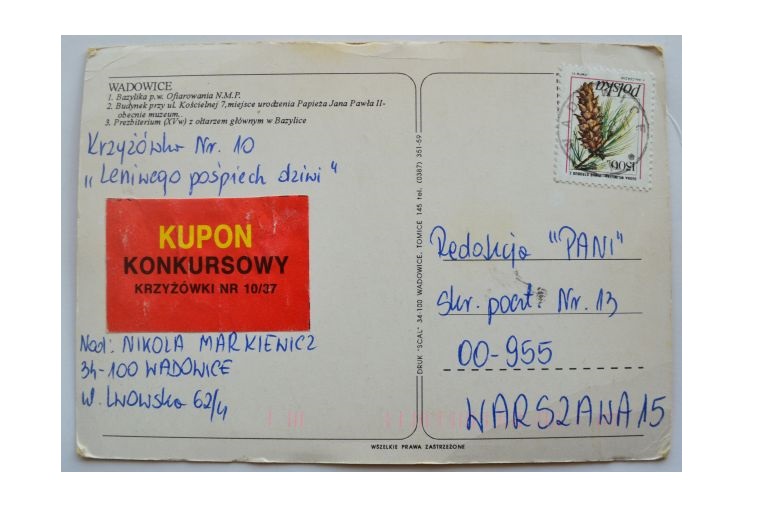 WADOWICE
1. Bazylika p.w. Ofiarowania N.M.P.
2. Budynek przy ul. Kościelnej 7, miejsce urodzenia Papieża Jana Pawła II-
obecnie muzeum.
3. Prezbiterium (XVw) z ołtarzem głównym w Bazylice
Krzyżówka Nr. 10
„Leniwego pośpiech dziwi"
KUPON
KONKURSOWY
KRZYŻÓWKI NR 10/37
Nad: NIKOLA MARKIEWICZ
34-100 WADOWICE
ul. Lwowska 62/4
DRUK "SCAL" 34-100 WADOWICE, TOMICE 145 tel. (0387) 351-59
Polska
1500
Redakcja "PANI"
skr. poczt. Nr. 13
00-955
WARSZAWA 15
WSZELKIE PRAWA ZASTRZEŻONE